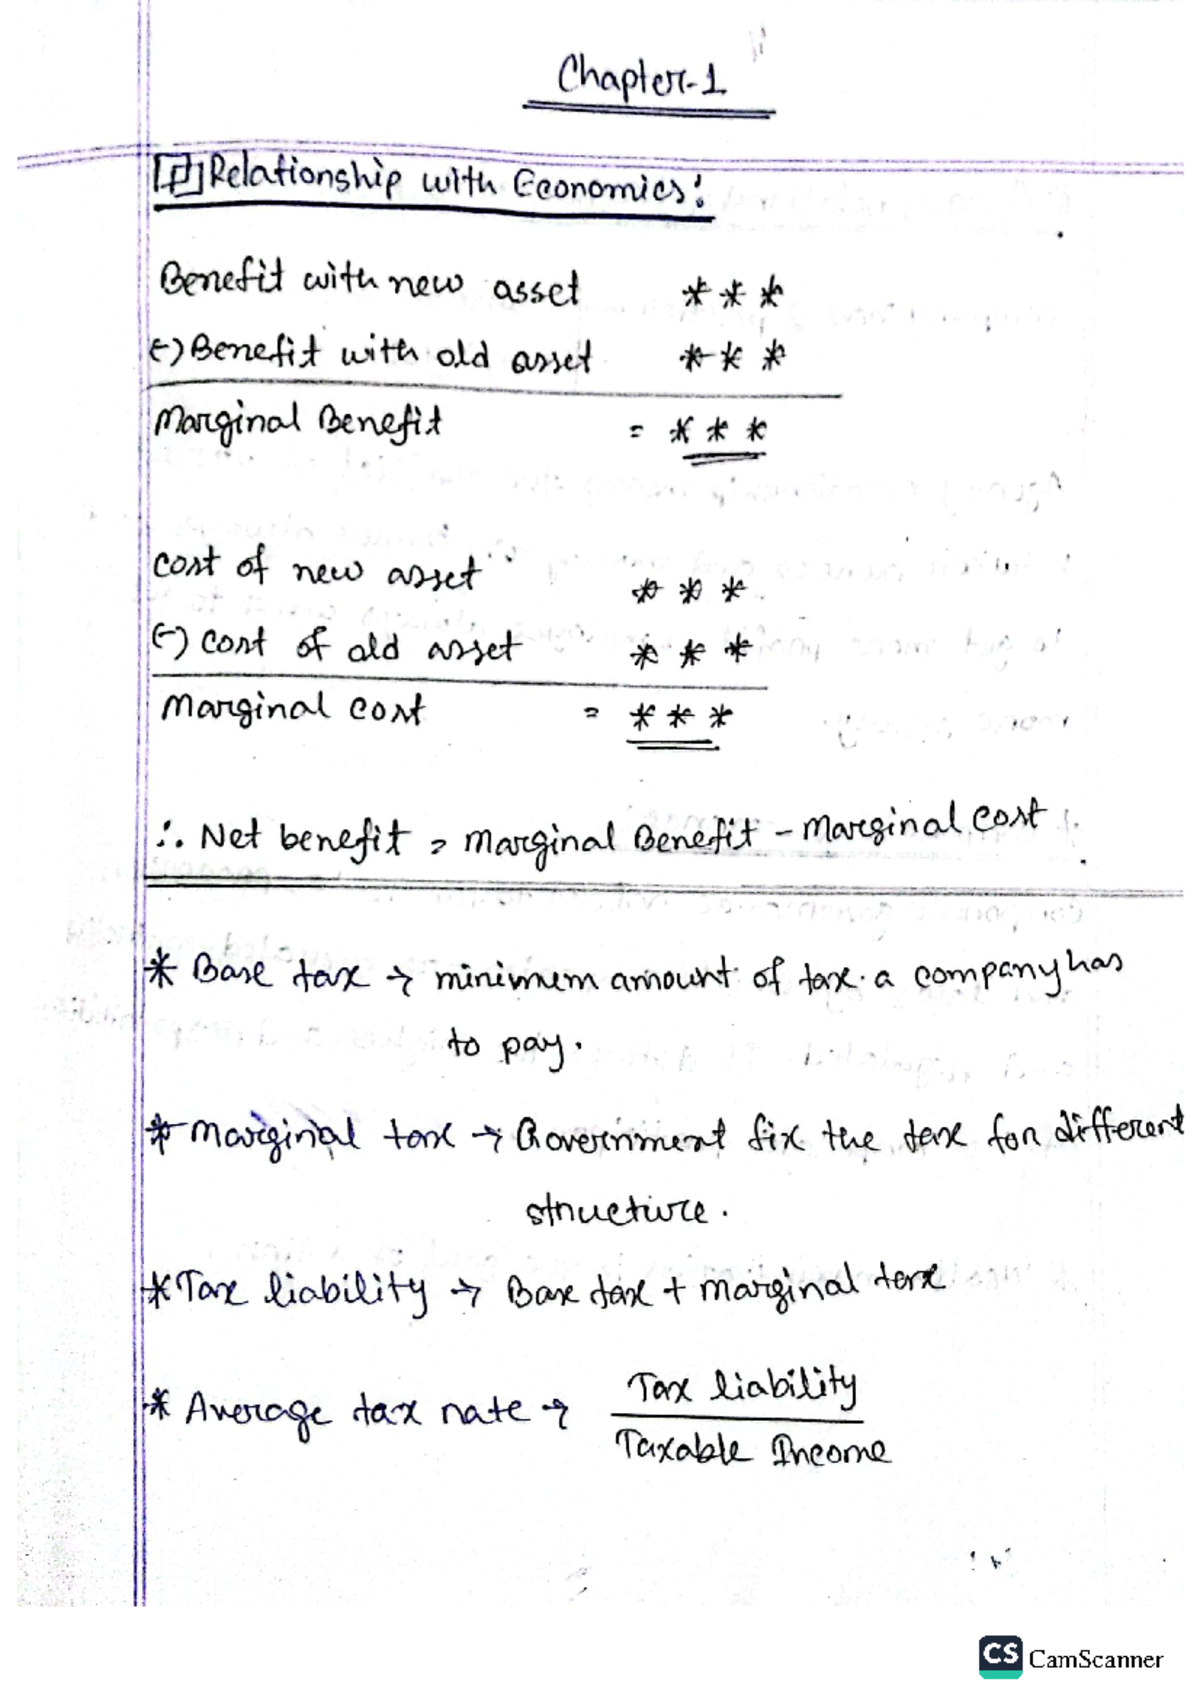 Chapter-1
Relationship with Economics:
Benefit with new asset * * *
(-) Benefit with old asset * * *
Marginal Benefit = * * *
Cost of new asset * * *
(-) Cost of old asset * * *
Marginal Cost = * * *
∴ Net benefit = Marginal Benefit - Marginal Cost
* Base tax → minimum amount of tax a company has
to pay.
* Marginal tax → Government fix the tax for different
structure.
* Tax liability → Base tax + marginal tax
* Average tax rate → Tax liability
Taxable Income
CS CamScanner